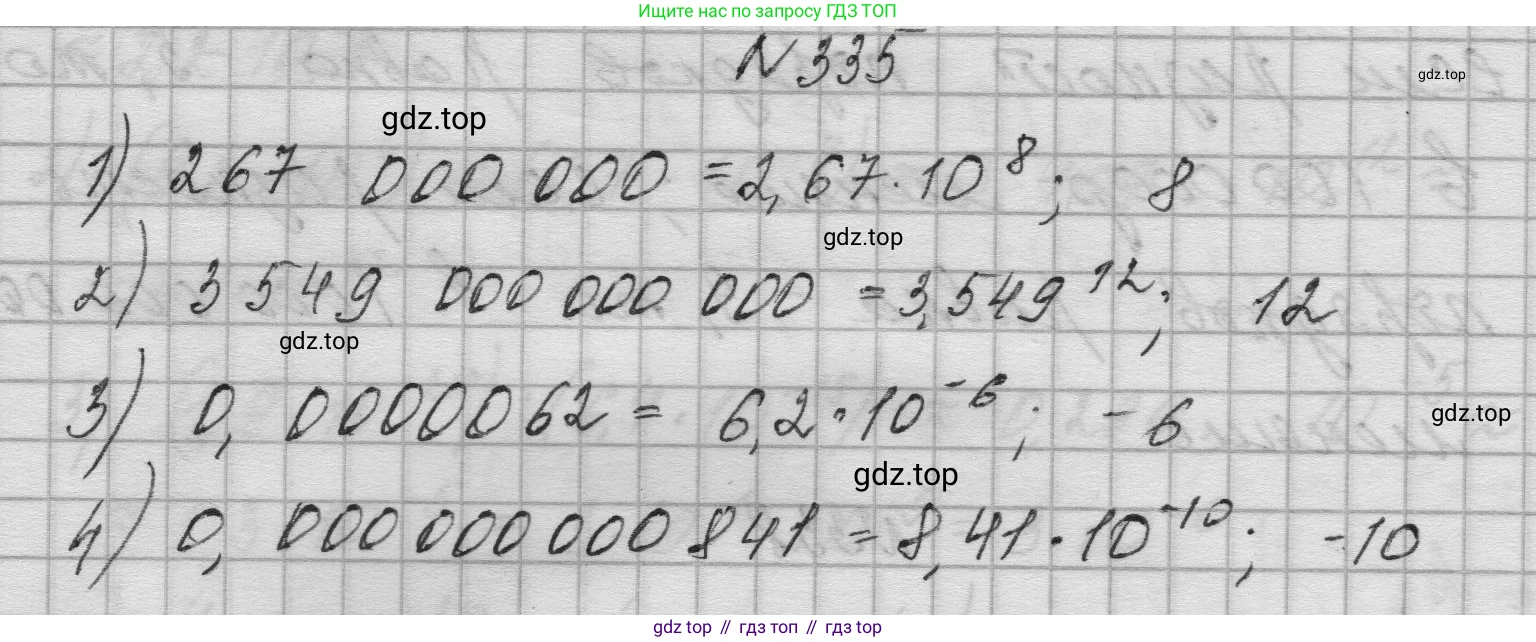 Ищите нас по запросу ГДЗ ТОП
N 335
gdz.top
gdz.top
1) 267 000 000 = 2,67 · 10⁸; 8
gdz.top
2) 3 549 000 000 000 = 3,549 ¹²; 12
gdz.top
3) 0, 0000062 = 6,2 · 10⁻⁶; -6
gdz.top
gdz.top
4) 0, 000 000 000 841 = 8,41 · 10⁻¹⁰; -10
gdz top // гдз топ // gdz top